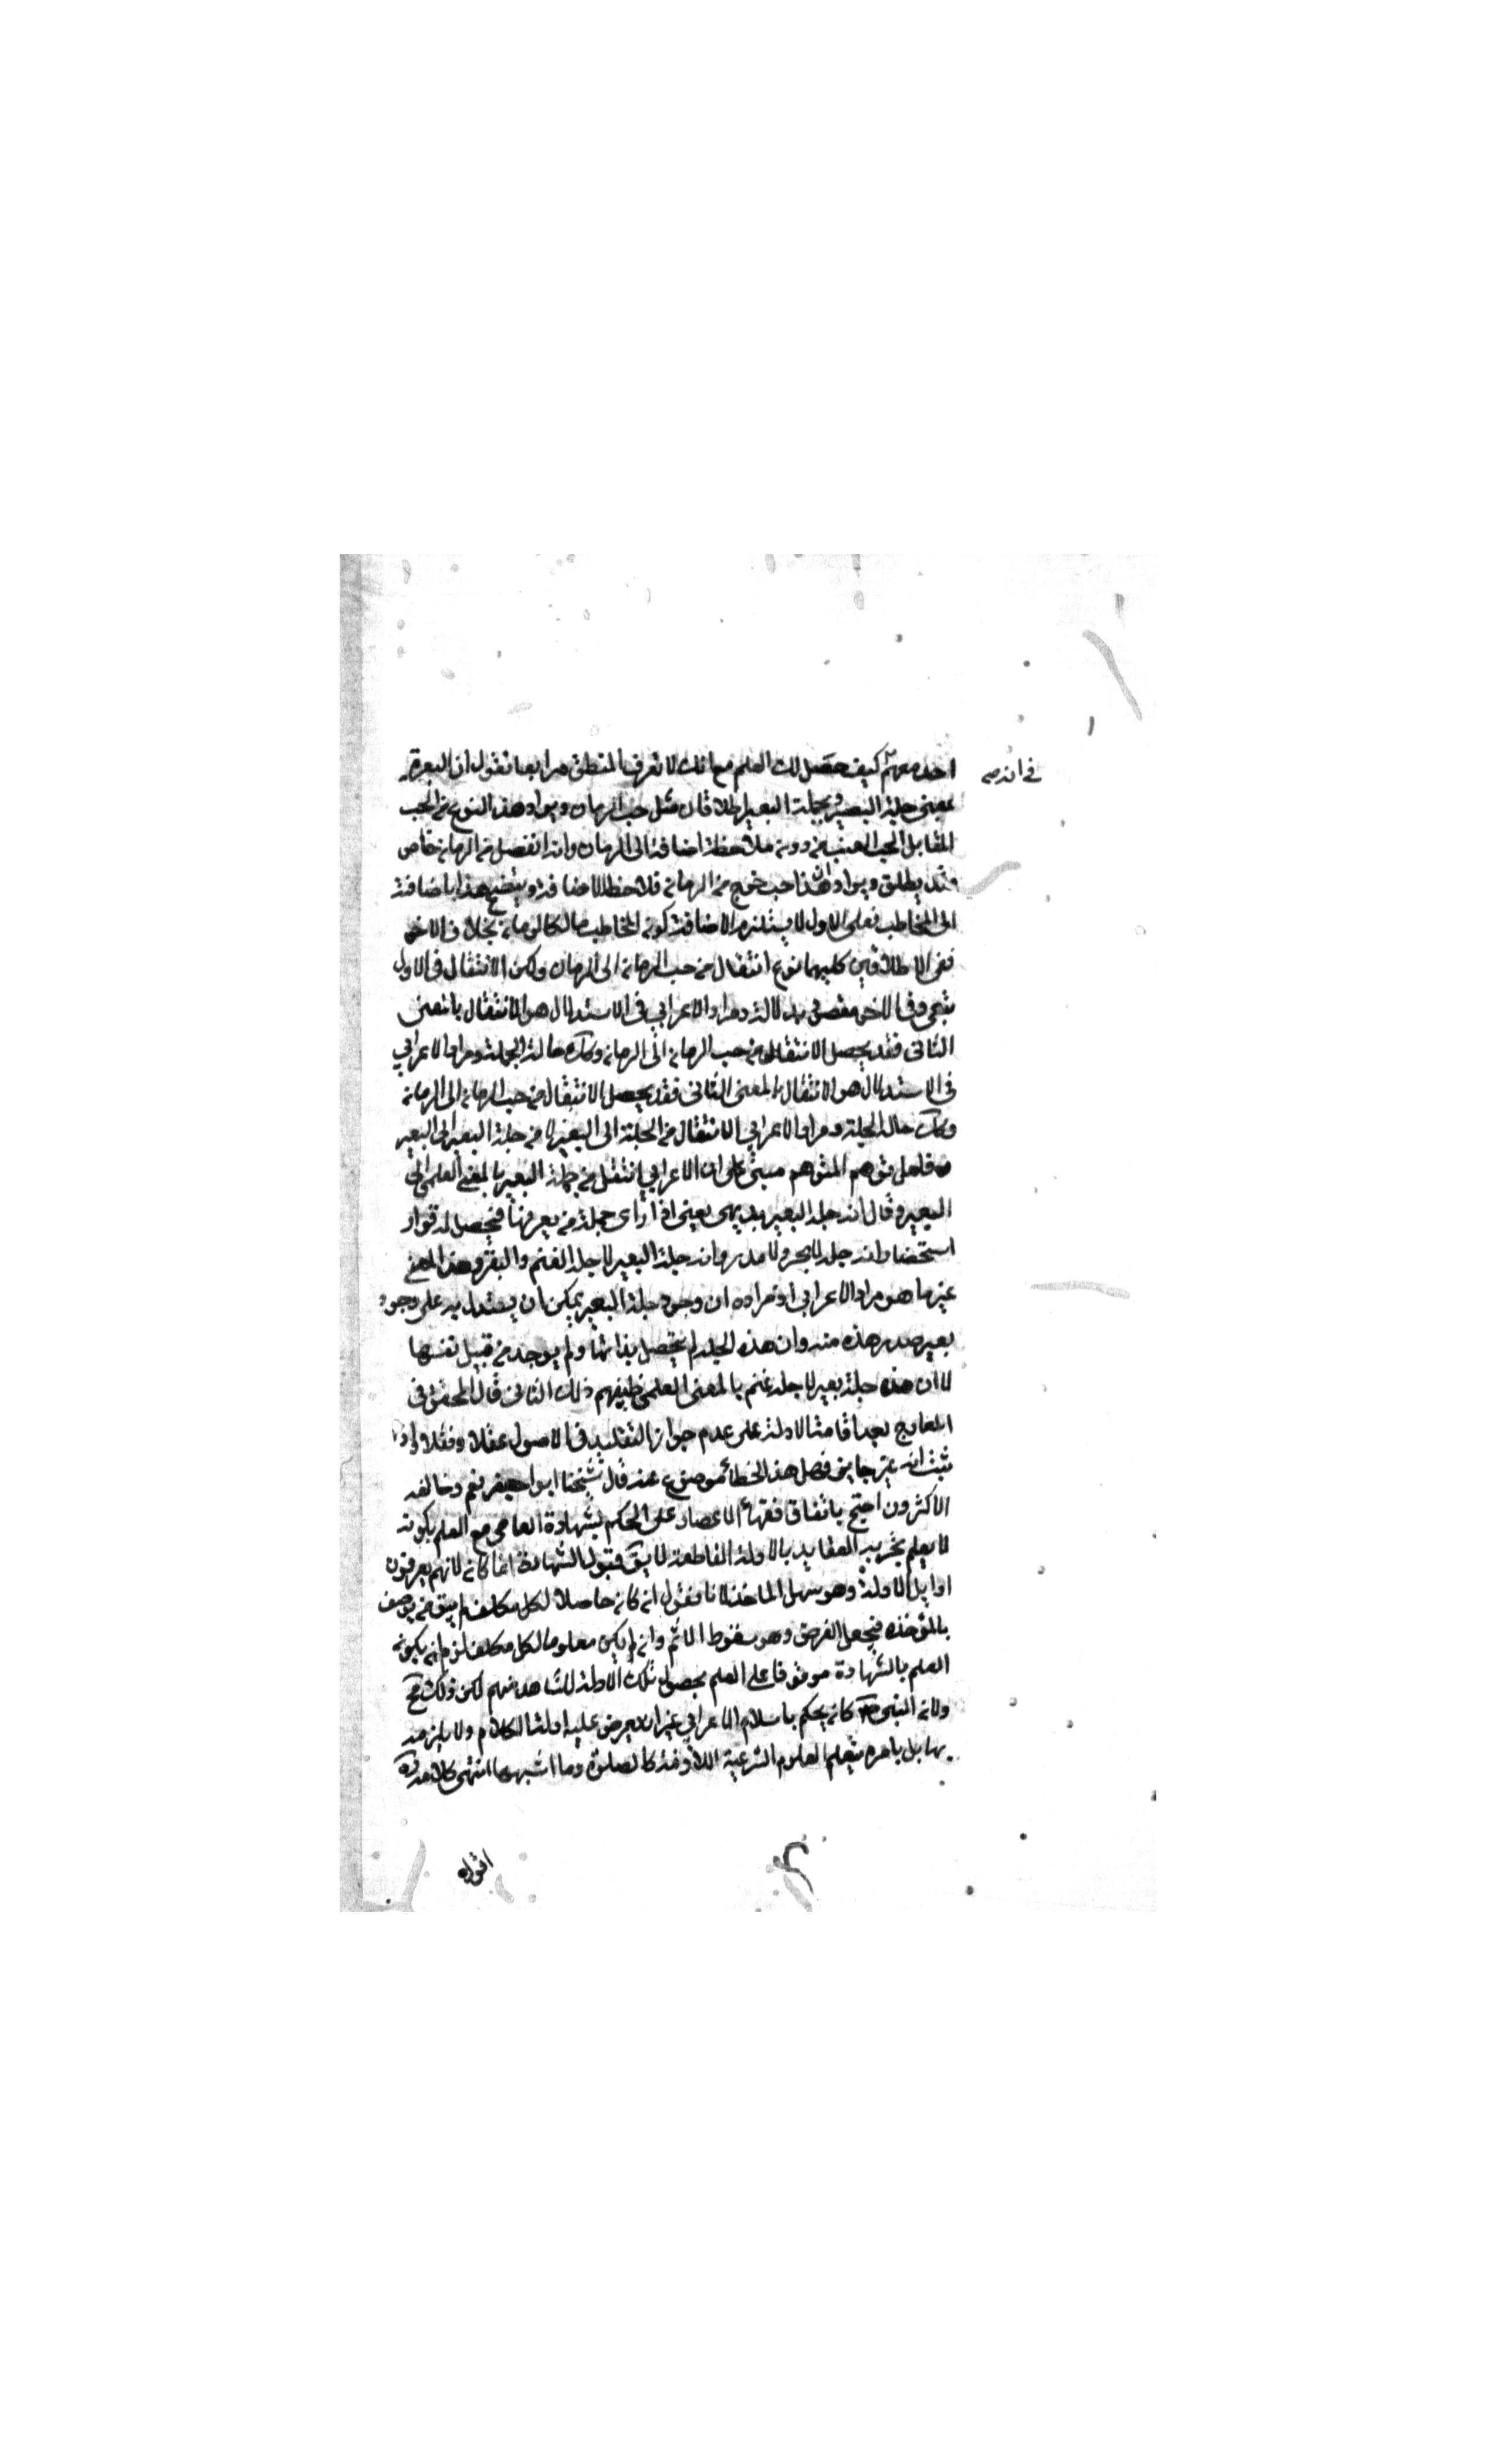 في انه
احد منهم كيف حصل لك العلم مع انك لا تعرف المنطق ورابعا نقول ان البعرة
بمعنى جلة البعير وبجملة البعير اطلاقان مثل حب الرمان ويراد هذا النوع من الحب
المقابل لحب العنب من دون ملاحظة اضافته الى الرمان وانه انفصل من الرمان خاص
وقد يطلق ويراد ان هذا حب خرج من الرمان فلاحظ الاضافة ويتضح هذا باضافته
الى المخاطب فعلى الاول لا يستلزم الاضافة كون المخاطب مالكا لرمان بخلاف الاخر
ففي الاطلاقين كليهما نوع انتقال من حب الرمان الى الرمان ولكن الانتقال في الاول
تبعي وفي الاخر مقصود بدلالة ومراد الاعرابي في الاستدلال هو الانتقال بالمعنى
الثاني فقد يحصل الانتقال من حب الرمان الى الرمان وكك حالة الجملة ومراد الاعرابي
في الاستدلال هو الانتقال بالمعنى الثاني فقد يحصل الانتقال من حب الرمان الى الرمان
وكك حال الجلة ومراد الاعرابي الانتقال من الجلة الى البعير لا من جلة البعير الى البعير
فلعل توهم المتوهم مبني على ان الاعرابي انتقل من جملة البعير بالمعنى العلمي الى
البعير وقال انه جلة البعير بديهي يعني اذا راى جملة من يعرفها فيحصل له قوار
استحضار انه جلة لا بحر ولا مدر وانه جلة البعير لا جلة الغنم والبقر وهذا المعنى
غير ما هو مراد الاعرابي اذ مراده ان وجود جلة البعير يمكن ان يستدل به على وجود
بعير صدر هذه منه وان هذه الجلة لم يتحصل بذاتها ولم يوجد من قبيل نفسها
لا ان هذه جلة بعير لا جلة غنم بالمعنى العلمي ذلك الثاني قال المحقق في
المعارج بعد اقامة الادلة على عدم جواز التقليد في الاصول عقلا ونقلا واذا
ثبت انه غير جايز فهل هذا الخطأ موضوع عنه قال شيخنا ابو جعفر نعم وخالفه
الاكثرون احتج باتفاق فقهاء الاعصار على الحكم بشهادة العامي مع العلم بكونه
لا يعلم تحرير العقايد بالادلة القاطعة لا يق قبول الشهادة انما كان لانهم يعرفون
اوايل الادلة وهو سهل الماخذ لانا نقول ان كان حاصلا لكل مكلف لم يبق من يوصف
بالمؤاخذة فيحصل الغرض وهو سقوط الاثم وان لم يكن معلوما لكل مكلف لزم ان يكون
العلم بالشهادة موقوفا على العلم بحصول تلك الادلة للشاهد منهم لكن ذلك مح
ولان النبي ص كان يحكم باسلام الاعرابي من غير ان يعرض عليه ادلة الكلام ولا يلزمه
بها بل يامره بتعلم العلوم الشرعية اللازمة كالصلوة وما اشبهها انتهى كلامه ره
اقول